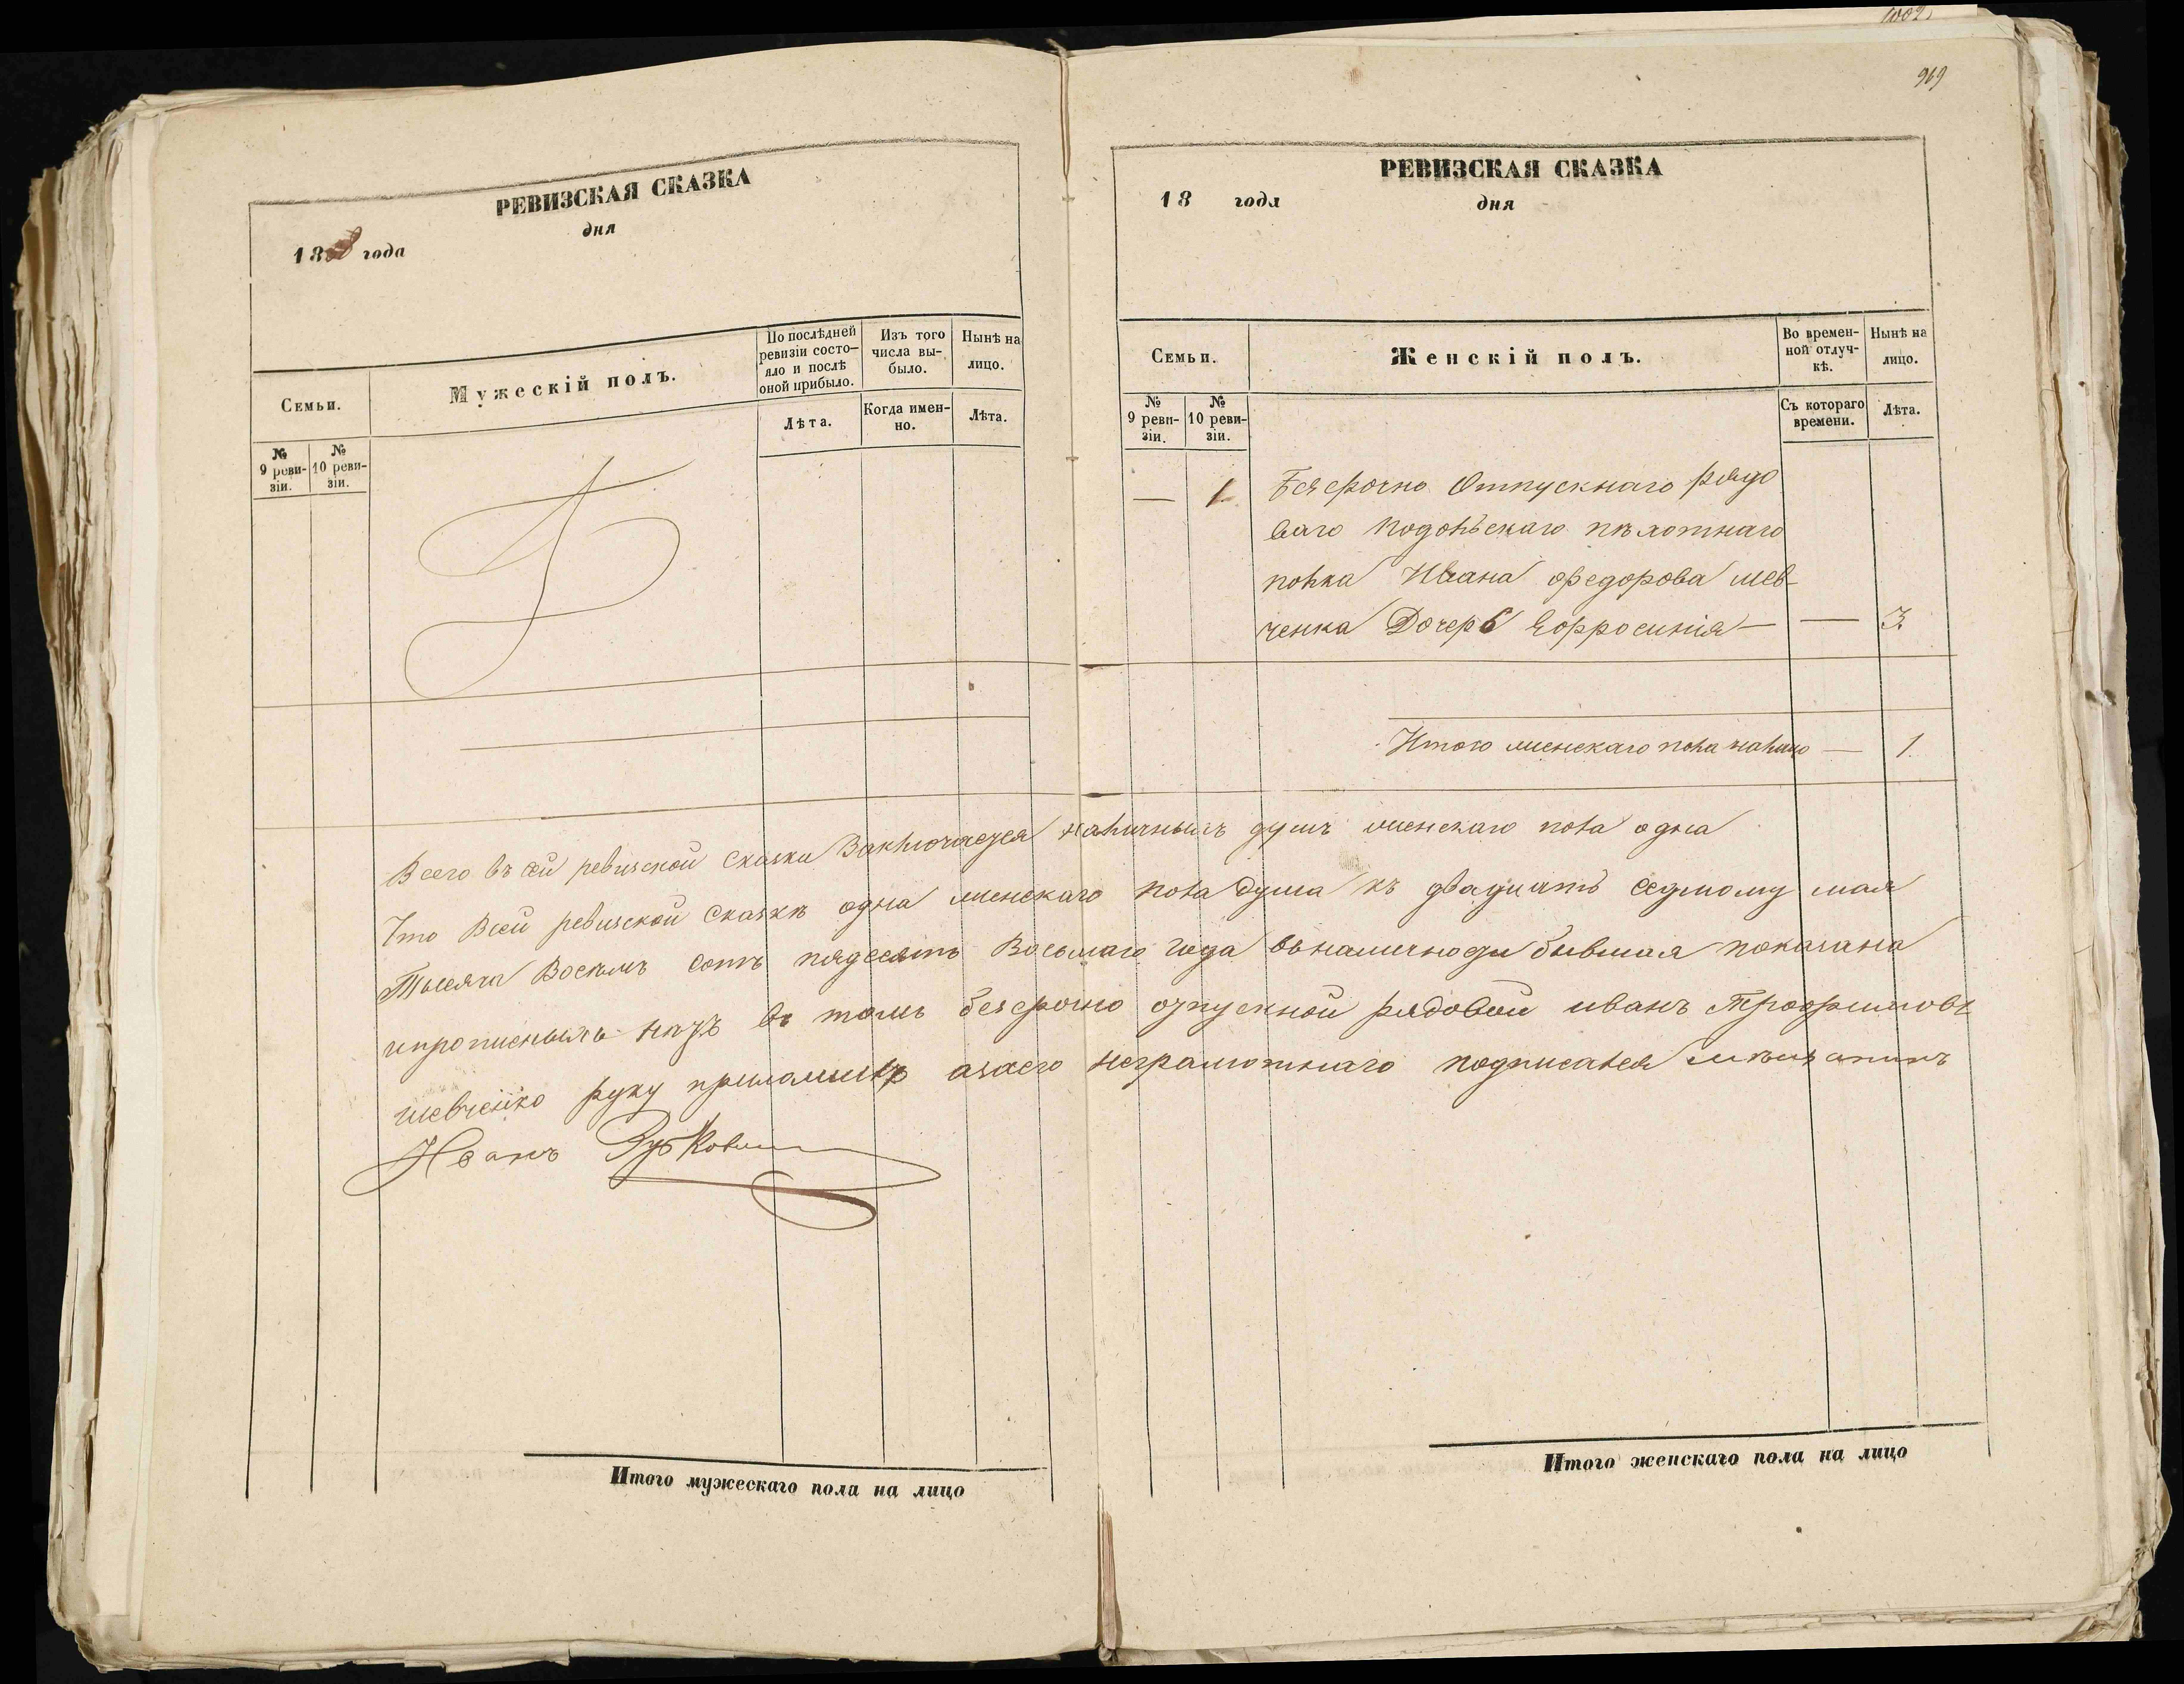 1002
969
РЕВИЗСКАЯ СКАЗКА
дня
1858 года
Семьи.
Мужескій полъ.
По послѣдней ревизіи состо-
яло и послѣ оной прибыло.
Изъ того числа вы-
было.
Нынѣ на лицо.
№ 9 реви-
зіи.
№ 10 реви-
зіи.
Лѣта.
Когда имен-
но.
Лѣта.
РЕВИЗСКАЯ СКАЗКА
18 года
дня
Семьи.
Женскій полъ.
Во времен-
ной отлуч-
кѣ.
Нынѣ на лицо.
№ 9 реви-
зіи.
№ 10 реви-
зіи.
Съ котораго времени.
Лѣта.
— 1 Безсрочно Отпускнаго рядо
ваго Подольскаго пѣхотнаго
полка Ивана Федорова Шев-
ченка Дочерь Ефросинія — — 3
Итого женскаго пола налицо — 1
Всего въ сей ревизской сказки Заключается наличныхъ душъ женскаго пола одна
Что Всей ревизской сказкѣ одна женскаго пола душа къ двадцать седмому мая
Тысяча Восемь сотъ пядесять Восьмаго года вьналичноди бывшая показана
ипрописныхъ нѣтъ въ томъ безсрочно отпускной рядовой иванъ Трофимовъ
шевченко руку приложилъ азаего неграмотнаго подписался мѣщанинъ
Иванъ
Итого мужескаго пола на лицо
Итого женскаго пола на лицо